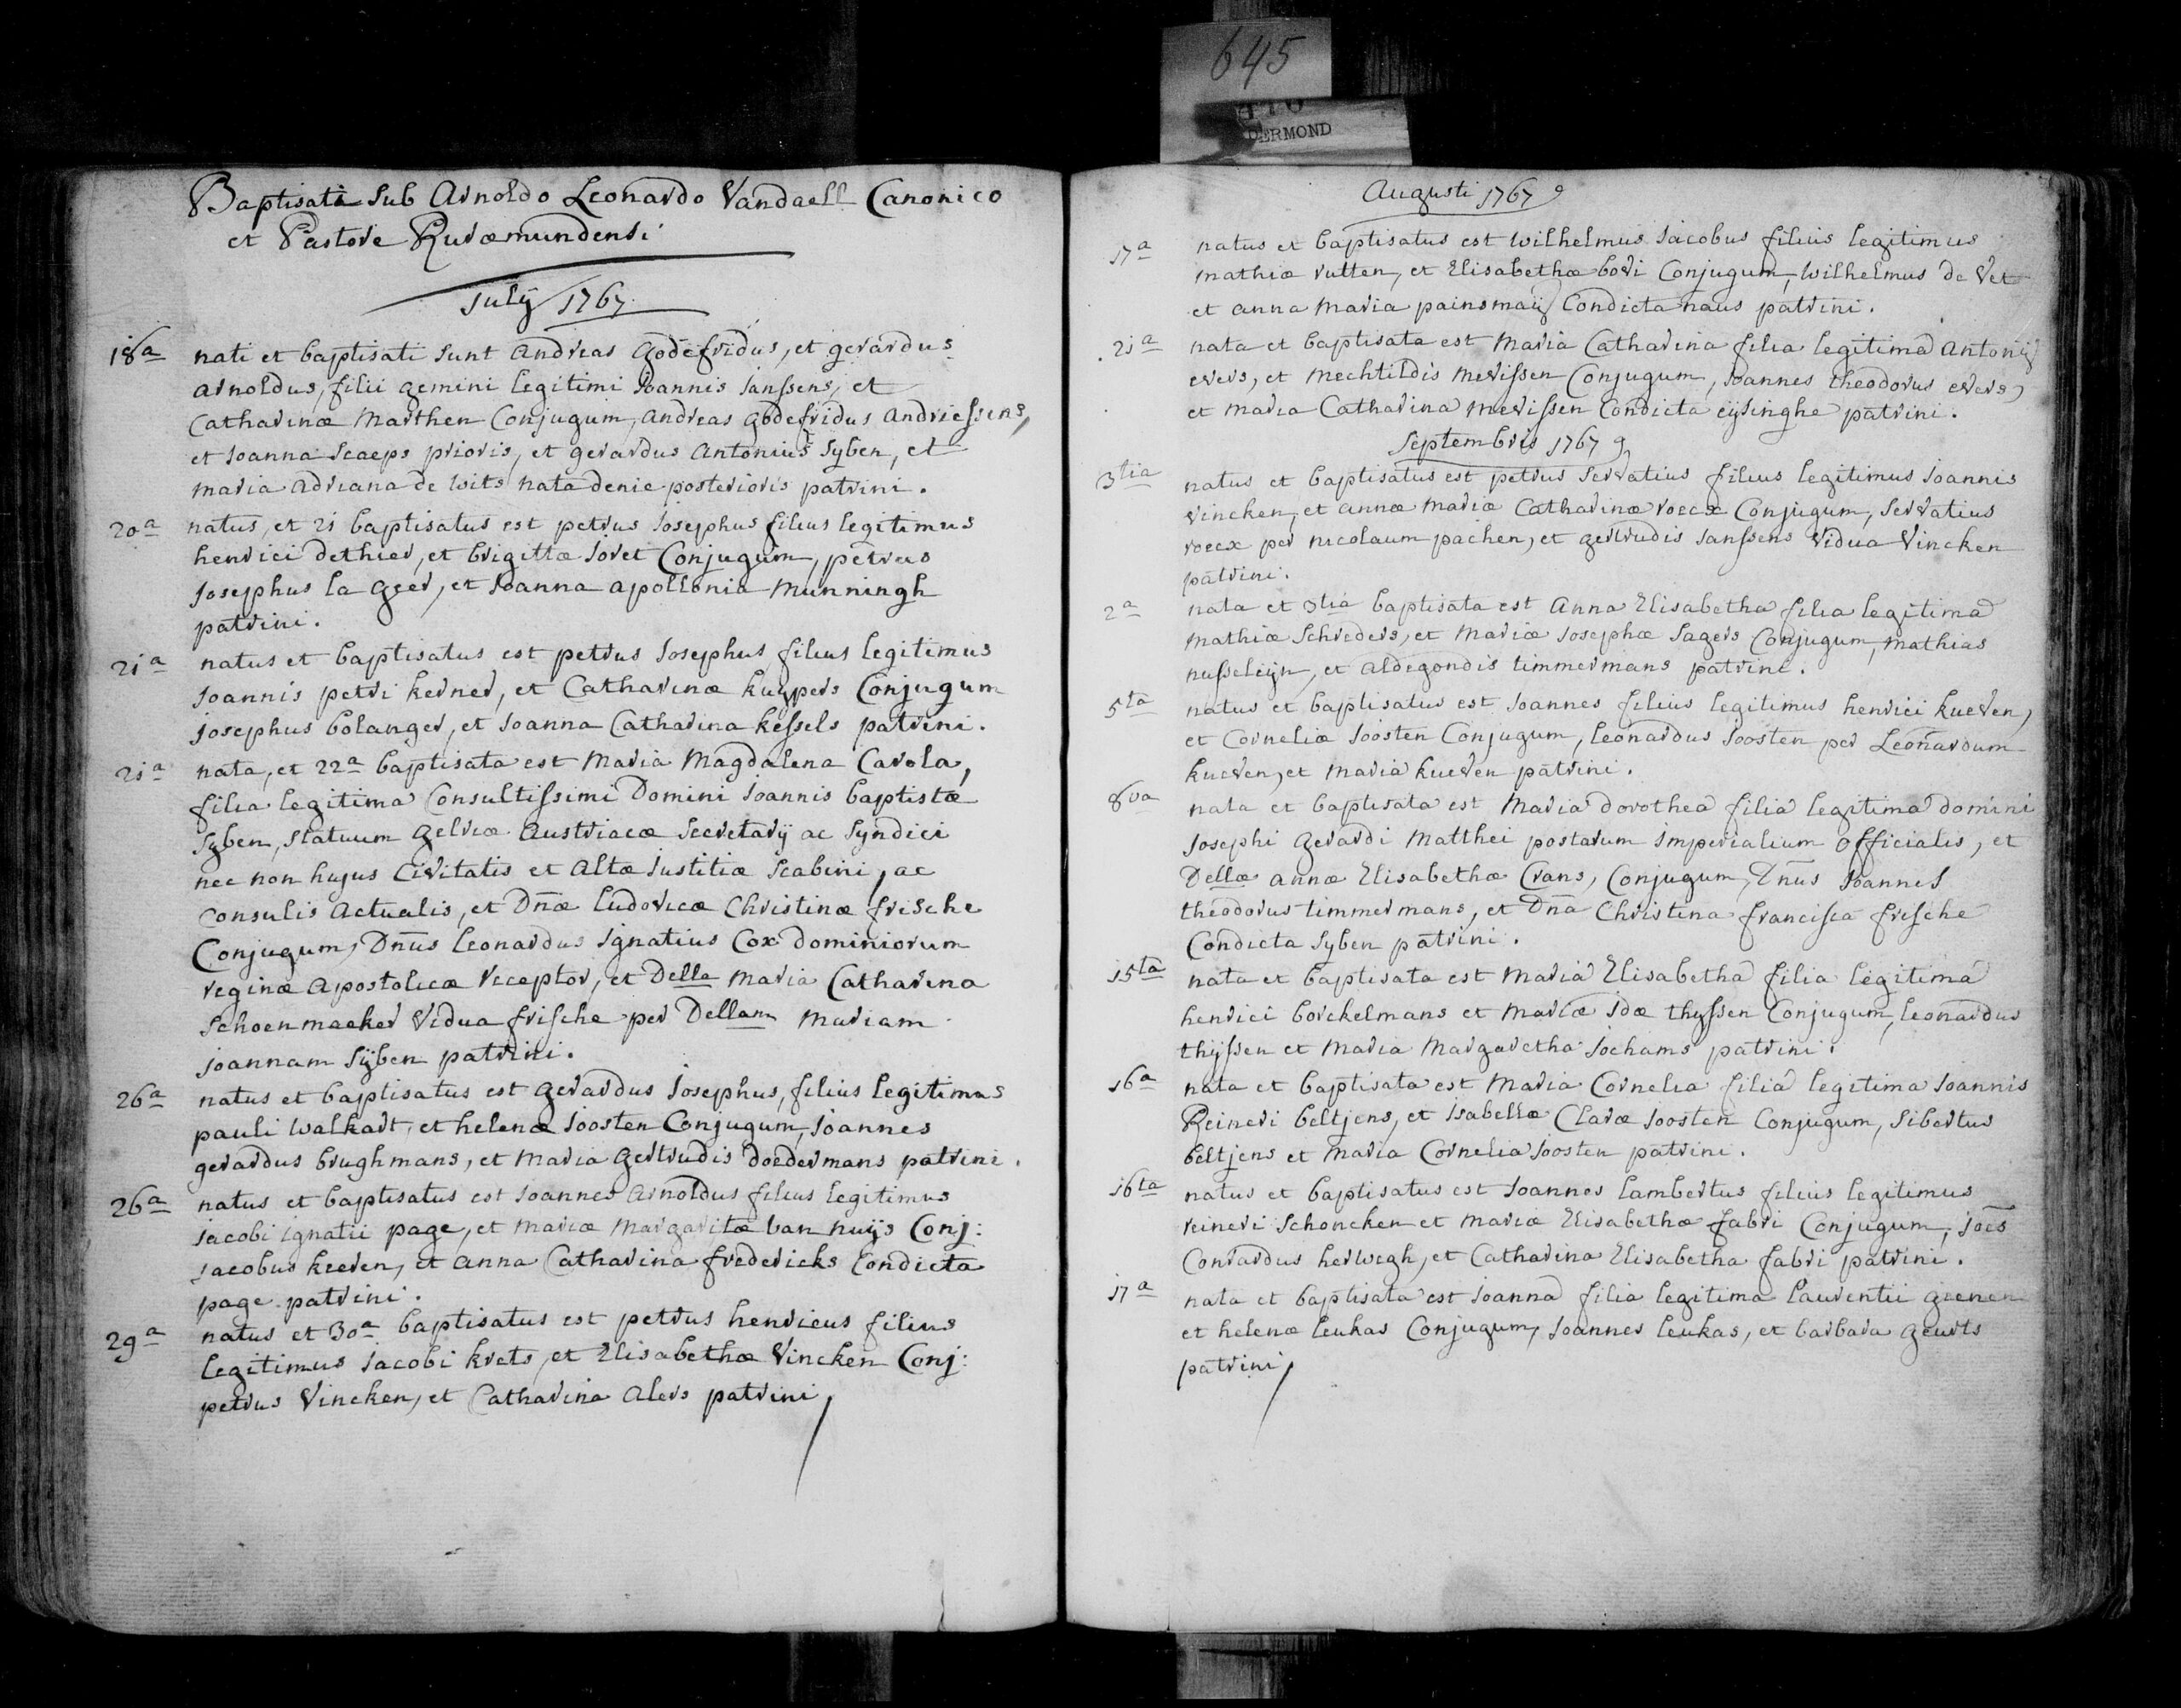 645
DERMOND
Baptisati sub Arnoldo Leonardo Vandaell Canonico
et Pastore Ruræmundensi
July 1767
18a nati et baptisati sunt Andreas godefridus, et gerardus
arnoldus, filii gemini legitimi Joannis Janssens, et
Catharinæ Marthen Conjugum, andreas godefridus andriessens,
et Joanna Scaeps prioris, et gerardus antonius Syben, et
maria adriana de wits nata denie posterioris patrini.
20a natus, et 21 baptisatus est petrus Josephus filius legitimus
henrici dethier, et brigittæ Joret Conjugum, petrus
Josephus la geer, et Joanna apollonia Munningh
patrini.
21a natus et baptisatus est petrus Josephus filius legitimus
Joannis petri kerner, et Catharinæ kuypers Conjugum
josephus bolanger, et Joanna Catharina kessels patrini.
21a nata, et 22a baptisata est Maria Magdalena Carola,
filia legitima Consultissimi Domini Joannis baptistæ
Syben, statuum gelriæ Austriacæ Secretarÿ ac Syndici
nec non hujus Civitatis et altæ Justitiæ Scabini, ac
consulis actualis, et Dnæ ludovicæ Christinæ frische
Conjugum, Dnus leonardus Ignatius Cox dominiorum
reginæ apostolicæ receptor, et Della maria Catharina
Schoenmaeker vidua frische per Dellam mariam
joannam Sÿben patrini.
26a natus et baptisatus est gerardus Josephus, filius legitimus
pauli walkart, et helenæ Joosten Conjugum, Joannes
gerardus brughmans, et maria gertrudis doedermans patrini.
26a natus et baptisatus est Joannes arnoldus filius legitimus
Jacobi ignatii page, et mariæ margaritæ van nuÿs Conj:
jacobus keeren, et anna Catharina fredericks Condicta
page patrini.
29a natus et 30a baptisatus est petrus henricus filius
legitimus Jacobi krets, et Elisabethæ Vincken Conj:
petrus Vincken, et Catharina alers patrini
Augusti 1767
17a natus et baptisatus est wilhelmus Jacobus filius legitimus
mathiæ rutten, et Elisabethæ bori Conjugum, wilhelmus de Vet
et anna maria painsmaÿ Condicta naus patrini.
21a nata et baptisata est Maria Catharina filia legitima antonÿ
evers, et mechtildis mevissen Conjugum, Joannes theodorus evers,
et maria Catharina mevissen Condicta eÿsinghe patrini.
Septembris 1767
3tia natus et baptisatus est petrus Servatius filius legitimus Joannis
vincken, et annæ mariæ Catharinæ roecx Conjugum, Servatius
roecx per nicolaum pachen, et gertrudis Janssens vidua Vincken
patrini.
2a nata et 3tia baptisata est Anna Elisabetha filia legitima
mathiæ Schreders, et mariæ Josephæ Sagers Conjugum, mathias
nusseleijn, et aldegondis timmermans patrini.
5ta natus et baptisatus est Joannes filius legitimus henrici kueven,
et Corneliæ Joosten Conjugum, leonardus Joosten per Leonardum
kueven, et maria kueven patrini.
8va nata et baptisata est Maria dorothea filia legitima domini
Josephi gerardi Matthei postarum Imperialium officialis, et
Dellæ annæ Elisabethæ Crans, Conjugum, Dnus Joannes
theodorus timmermans, et Dna Christina francisca frische
Condicta Syben patrini.
15ta nata et baptisata est maria Elisabetha filia legitima
henrici borckelmans et mariæ Idæ thyssen Conjugum, leonardus
thÿssen et maria Margaretha Jochams patrini.
16a nata et baptisata est Maria Cornelia filia legitima Joannis
Reineri beltjens, et isabellæ Claræ Joosten Conjugum, Sibertus
beltjens et maria Cornelia Joosten patrini.
16ta natus et baptisatus est Joannes lambertus filius legitimus
reineri Schoncken et mariæ Elisabethæ fabri Conjugum, Joes
Conrardus herwegh, et Catharina Elisabetha fabri patrini.
17a nata et baptisata est Joanna filia legitima laurentii gienen
et helenæ leukas Conjugum, Joannes leukas, et barbara geurts
patrini